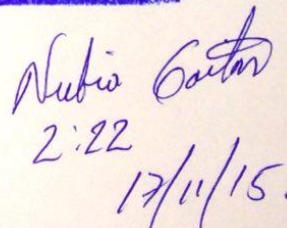 Nubia Gaitan
2:22
17/11/15.